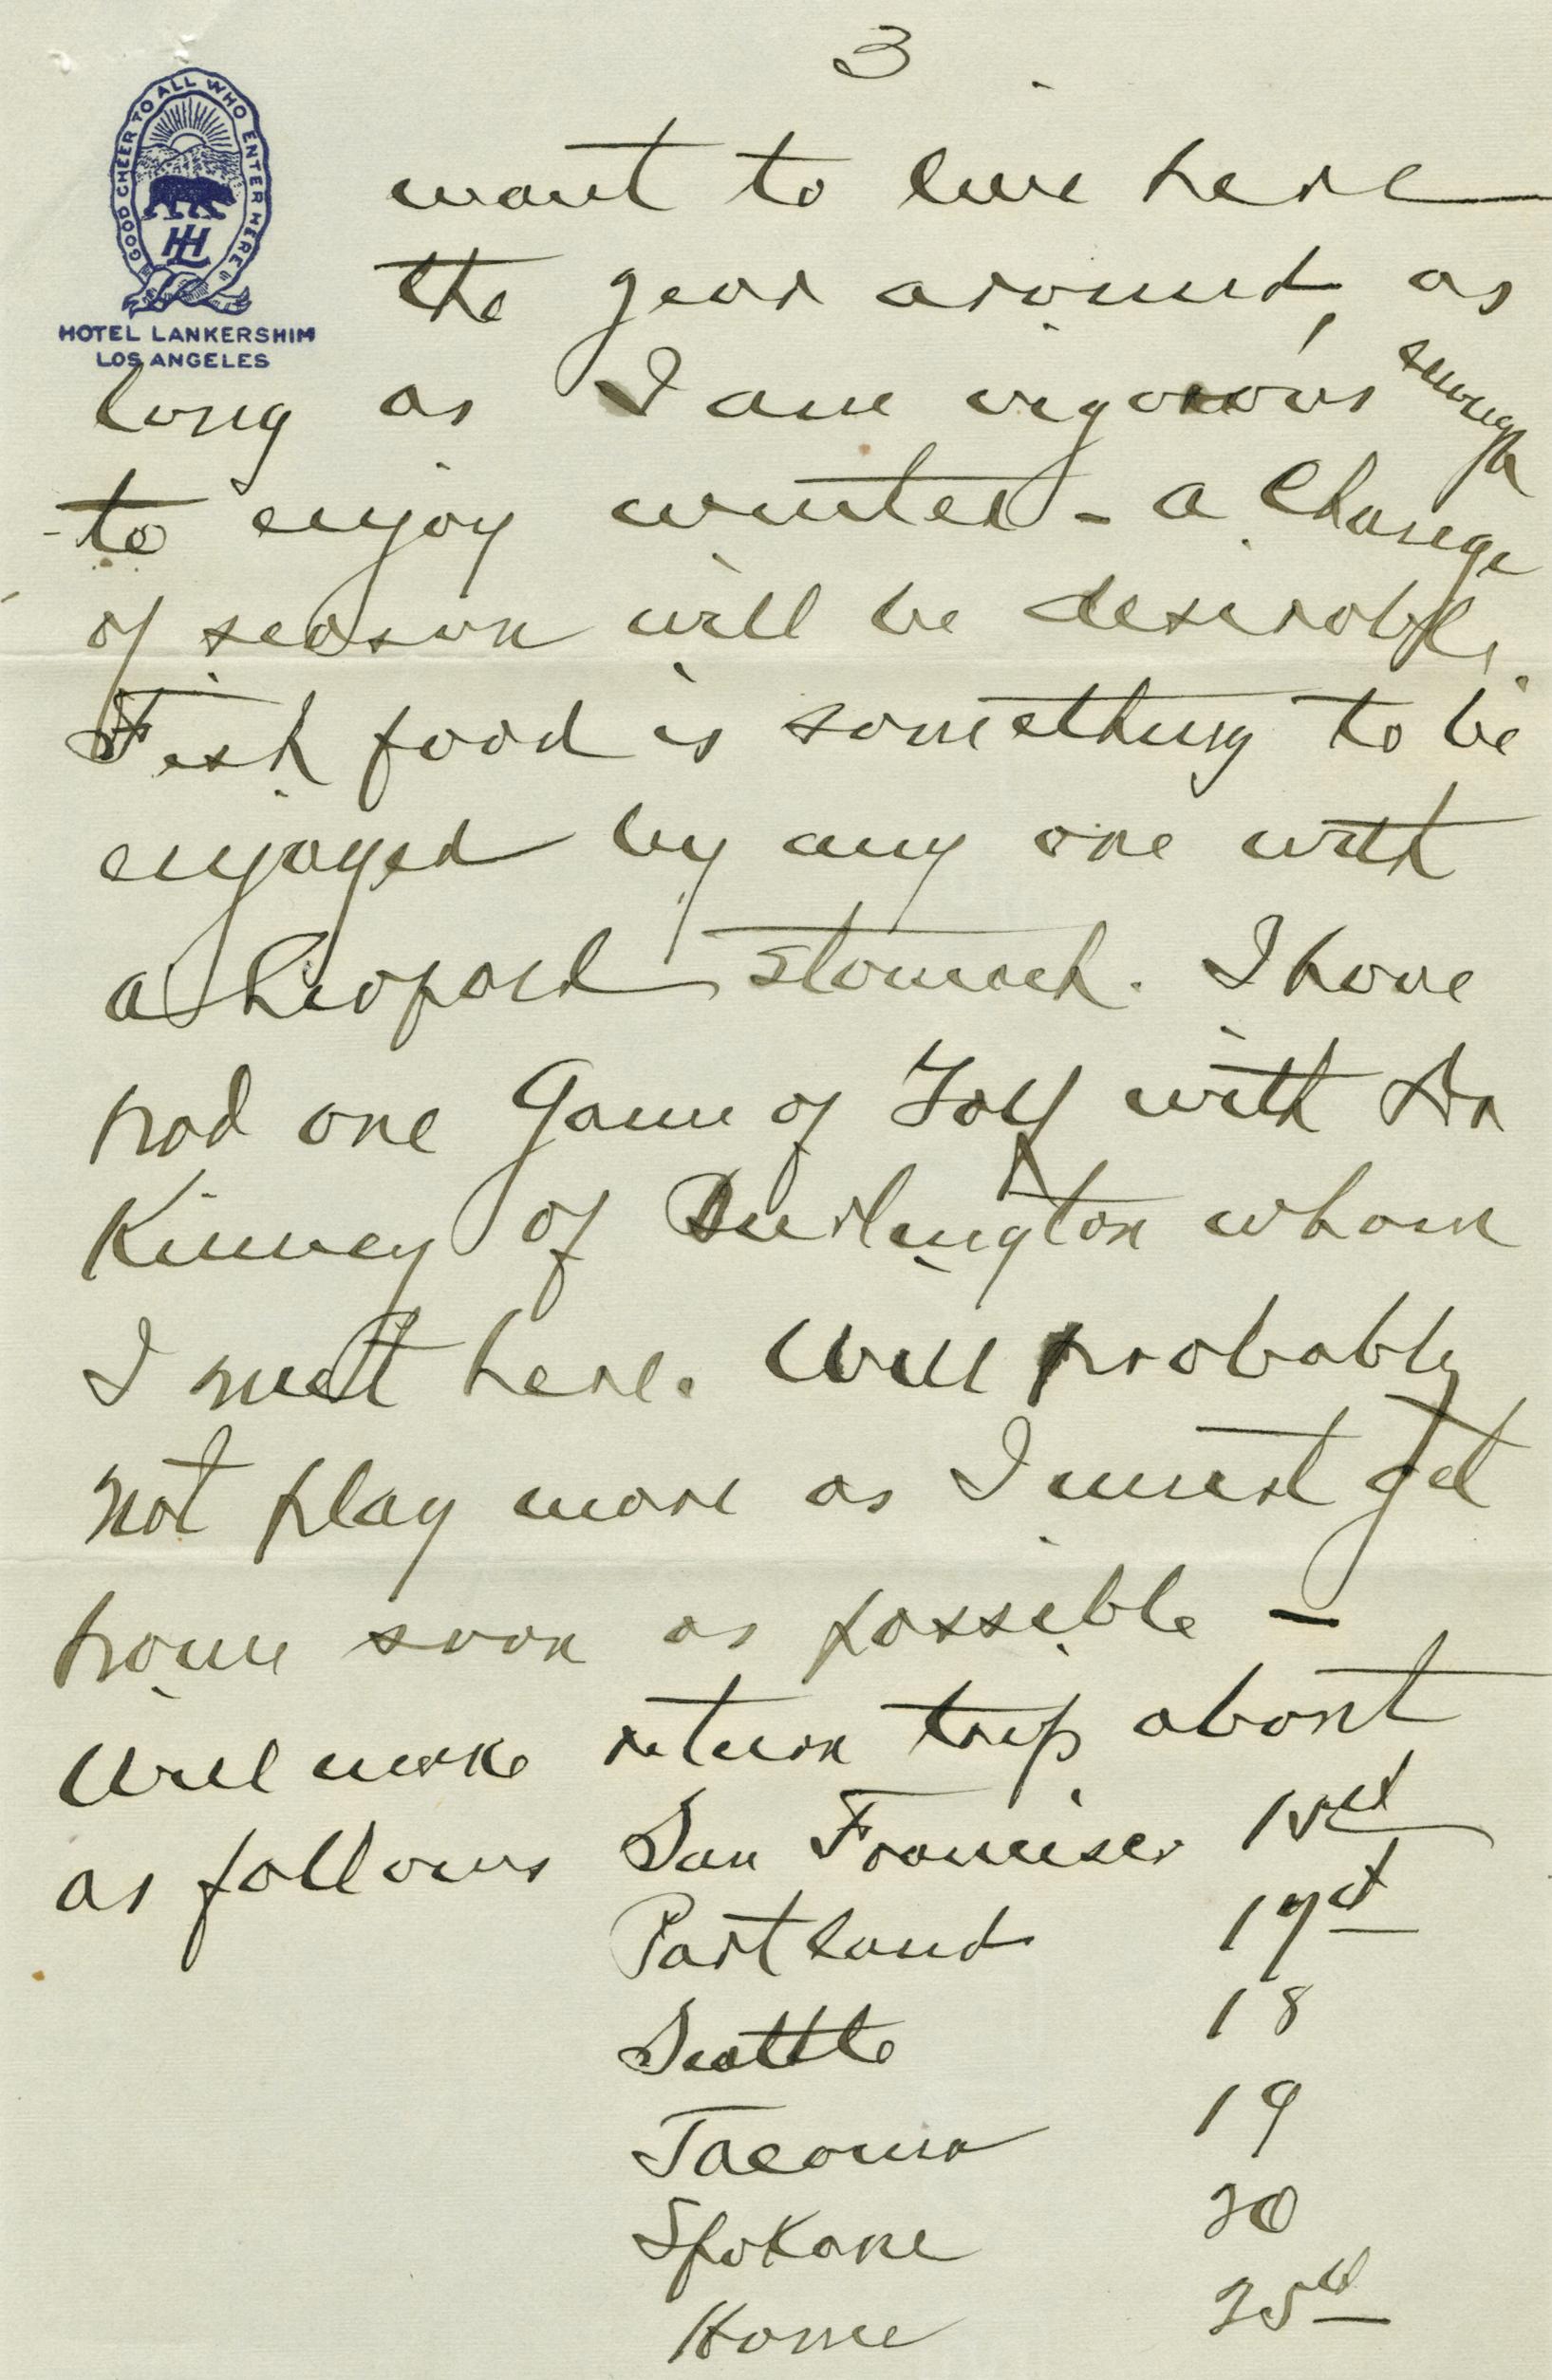 3
GOOD CHEER TO ALL WHO ENTER HERE
HL
HOTEL LANKERSHIM
LOS ANGELES
want to live here
the year around, as
long as I am vigorous enough
to enjoy winter - a Change
of season will be desirable.
Fish food is something to be
enjoyed by any one with
a Leopard stomach. I have
had one Game of Golf with Dr
Kinney of Burlington whom
I met here. Will probably
not play more as I must get
home soon as possible -
Will make return trip about
as follows San Francisco 15th
Portland 17th
Seattle 18
Tacoma 19
Spokane 20
Home 25th